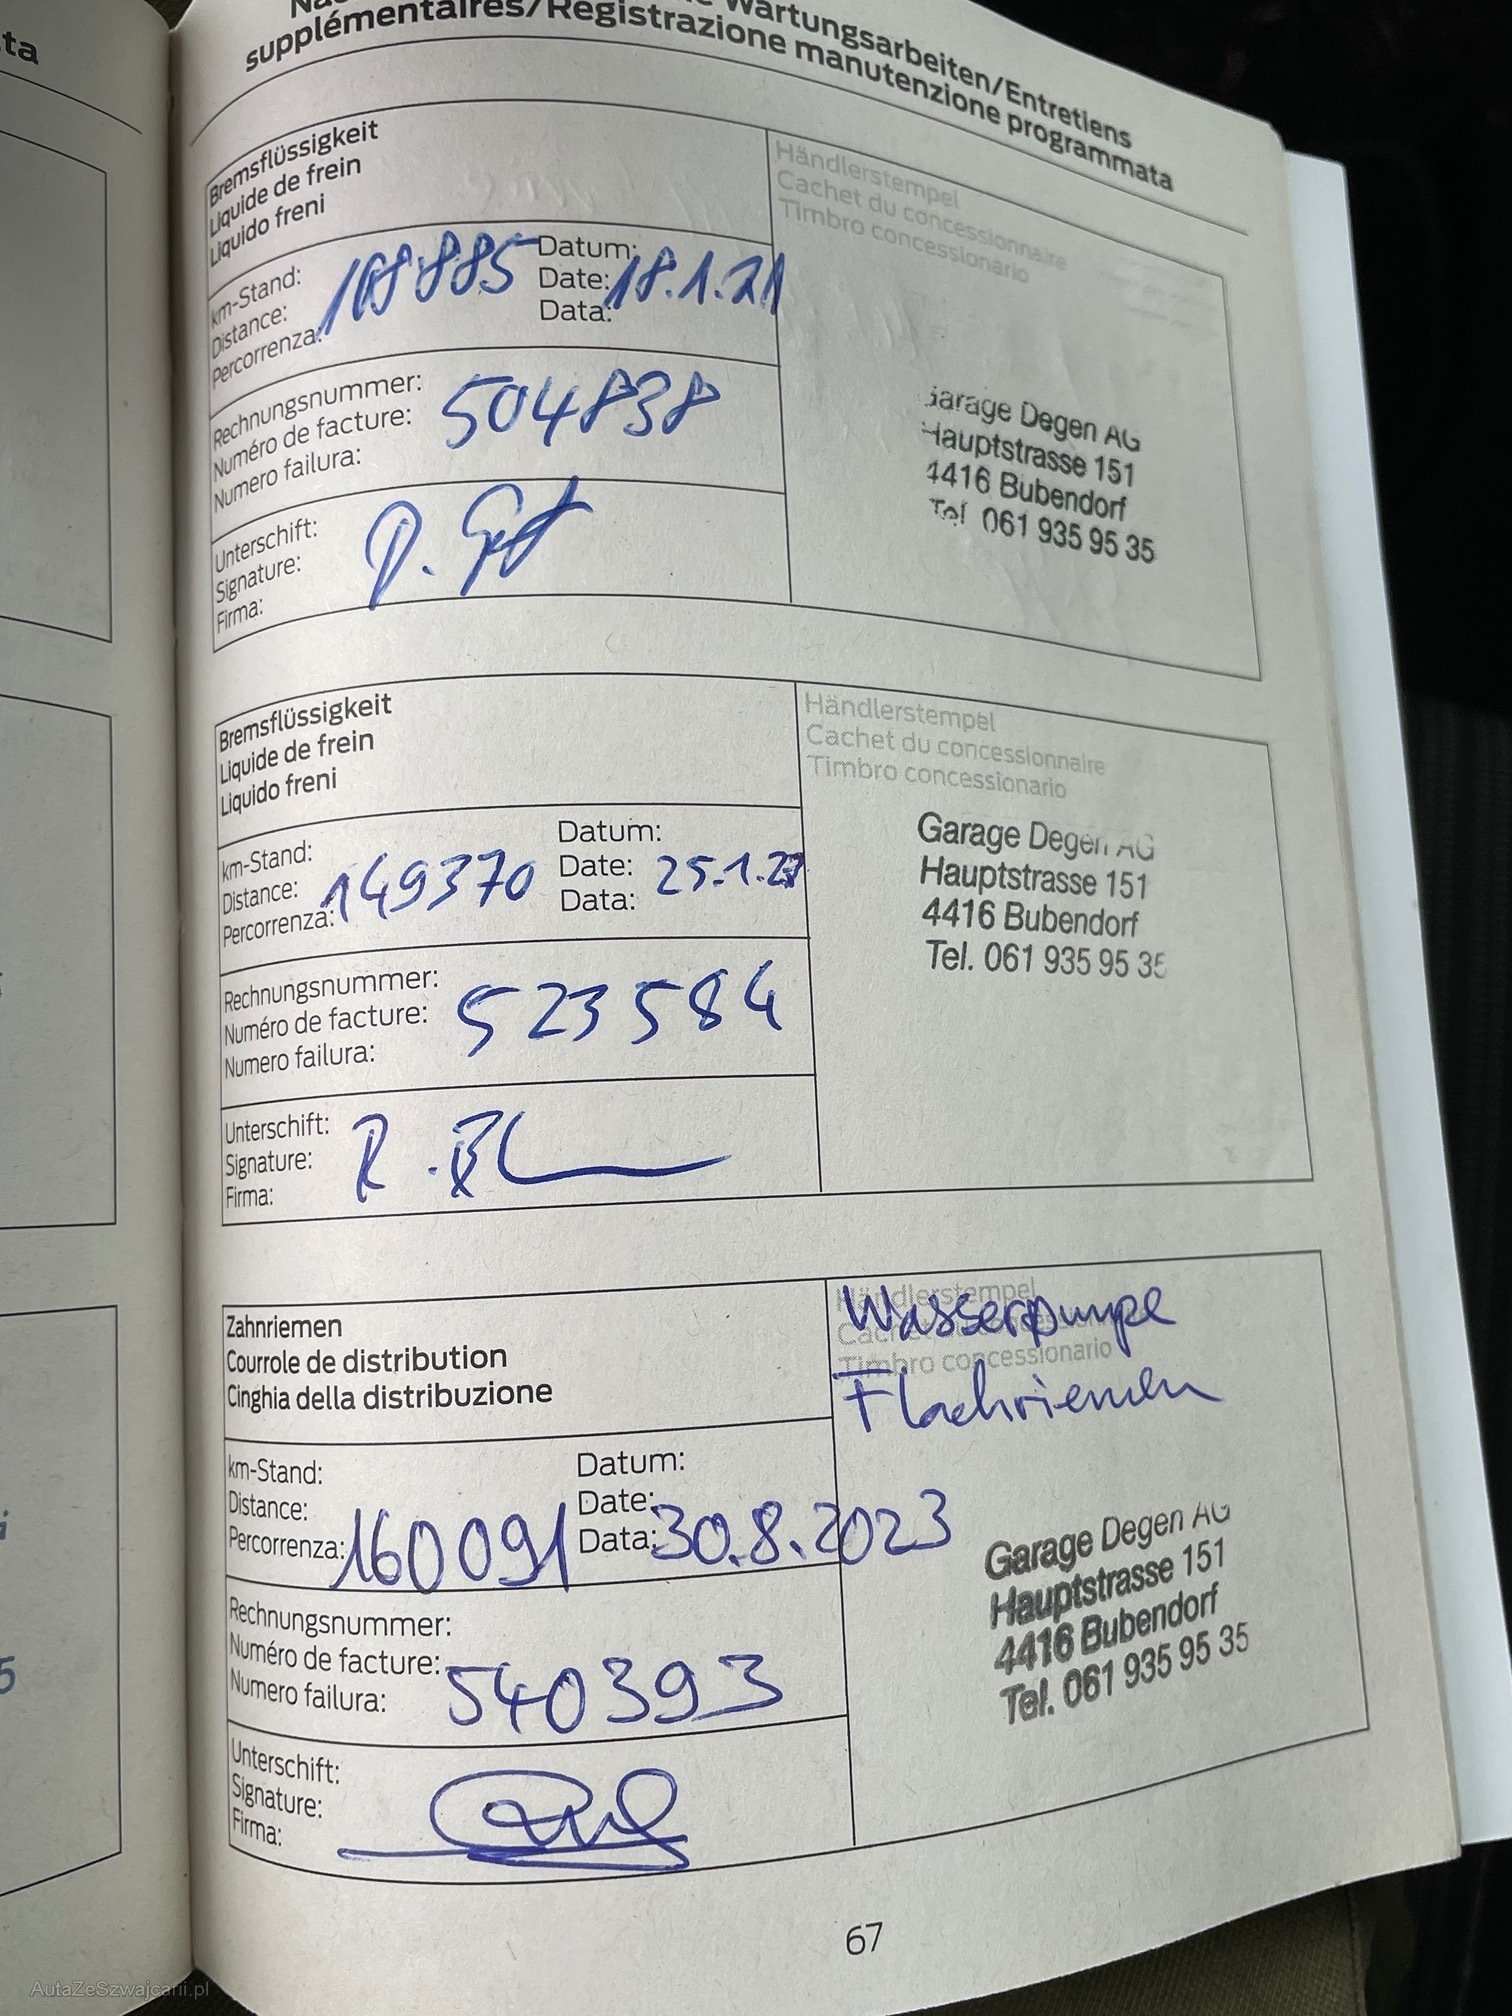 ta
Wartungsarbeiten/Entretiens
supplémentaires/Registrazione manutenzione programmata
Bremsflüssigkeit
Liquide de frein
Liquido freni
km-Stand:
Distance:
Percorrenza:
108885
Datum:
Date:
Data:
18.1.21
Rechnungsnummer:
Numéro de facture:
Numero failura:
504838
Unterschift:
Signature:
Firma:
Händlerstempel
Cachet du concessionnaire
Timbro concessionario
Garage Degen AG
Hauptstrasse 151
4416 Bubendorf
Tel. 061 935 95 35
Bremsflüssigkeit
Liquide de frein
Liquido freni
km-Stand:
Distance:
Percorrenza:
149370
Datum:
Date:
Data:
Rechnungsnummer:
Numéro de facture:
Numero failura:
523584
Unterschift:
Signature:
Firma:
Händlerstempel
Cachet du concessionnaire
Timbro concessionario
Garage Degen AG
Hauptstrasse 151
4416 Bubendorf
Tel. 061 935 95 35
Zahnriemen
Courrole de distribution
Cinghia della distribuzione
km-Stand:
Distance:
Percorrenza:
160091
Datum:
Date:
Data:
30.8.2023
Rechnungsnummer:
Numéro de facture:
Numero failura:
540393
Unterschift:
Signature:
Firma:
Händlerstempel
Cachet du concessionnaire
Timbro concessionario
Wasserpumpe
Flachriemen
Garage Degen AG
Hauptstrasse 151
4416 Bubendorf
Tel. 061 935 95 35
67
AutaZeSzwajcarii.pl